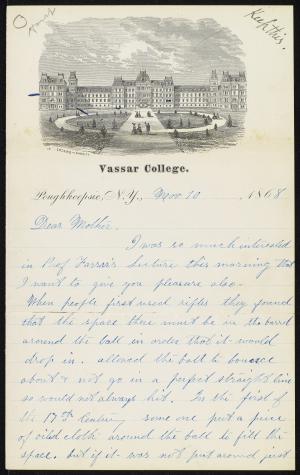 Keep this.
Vassar College.
Poughkeepsie, N.Y., Nov. 10 1868
Dear Mother.
I was so much interested
in Prof Farrar's lecture this morning that
I want to give you pleasure also.
When people first used rifles they found
that the space there must be in the barrel
around the ball in order that it would
drop in. allowed the ball to bounce
about & not go in a perfect straight line
so would not always hit. In the first of
the 17th Century some one put a piece
of oiled cloth around the ball to fill the
space. but if it was not put around just